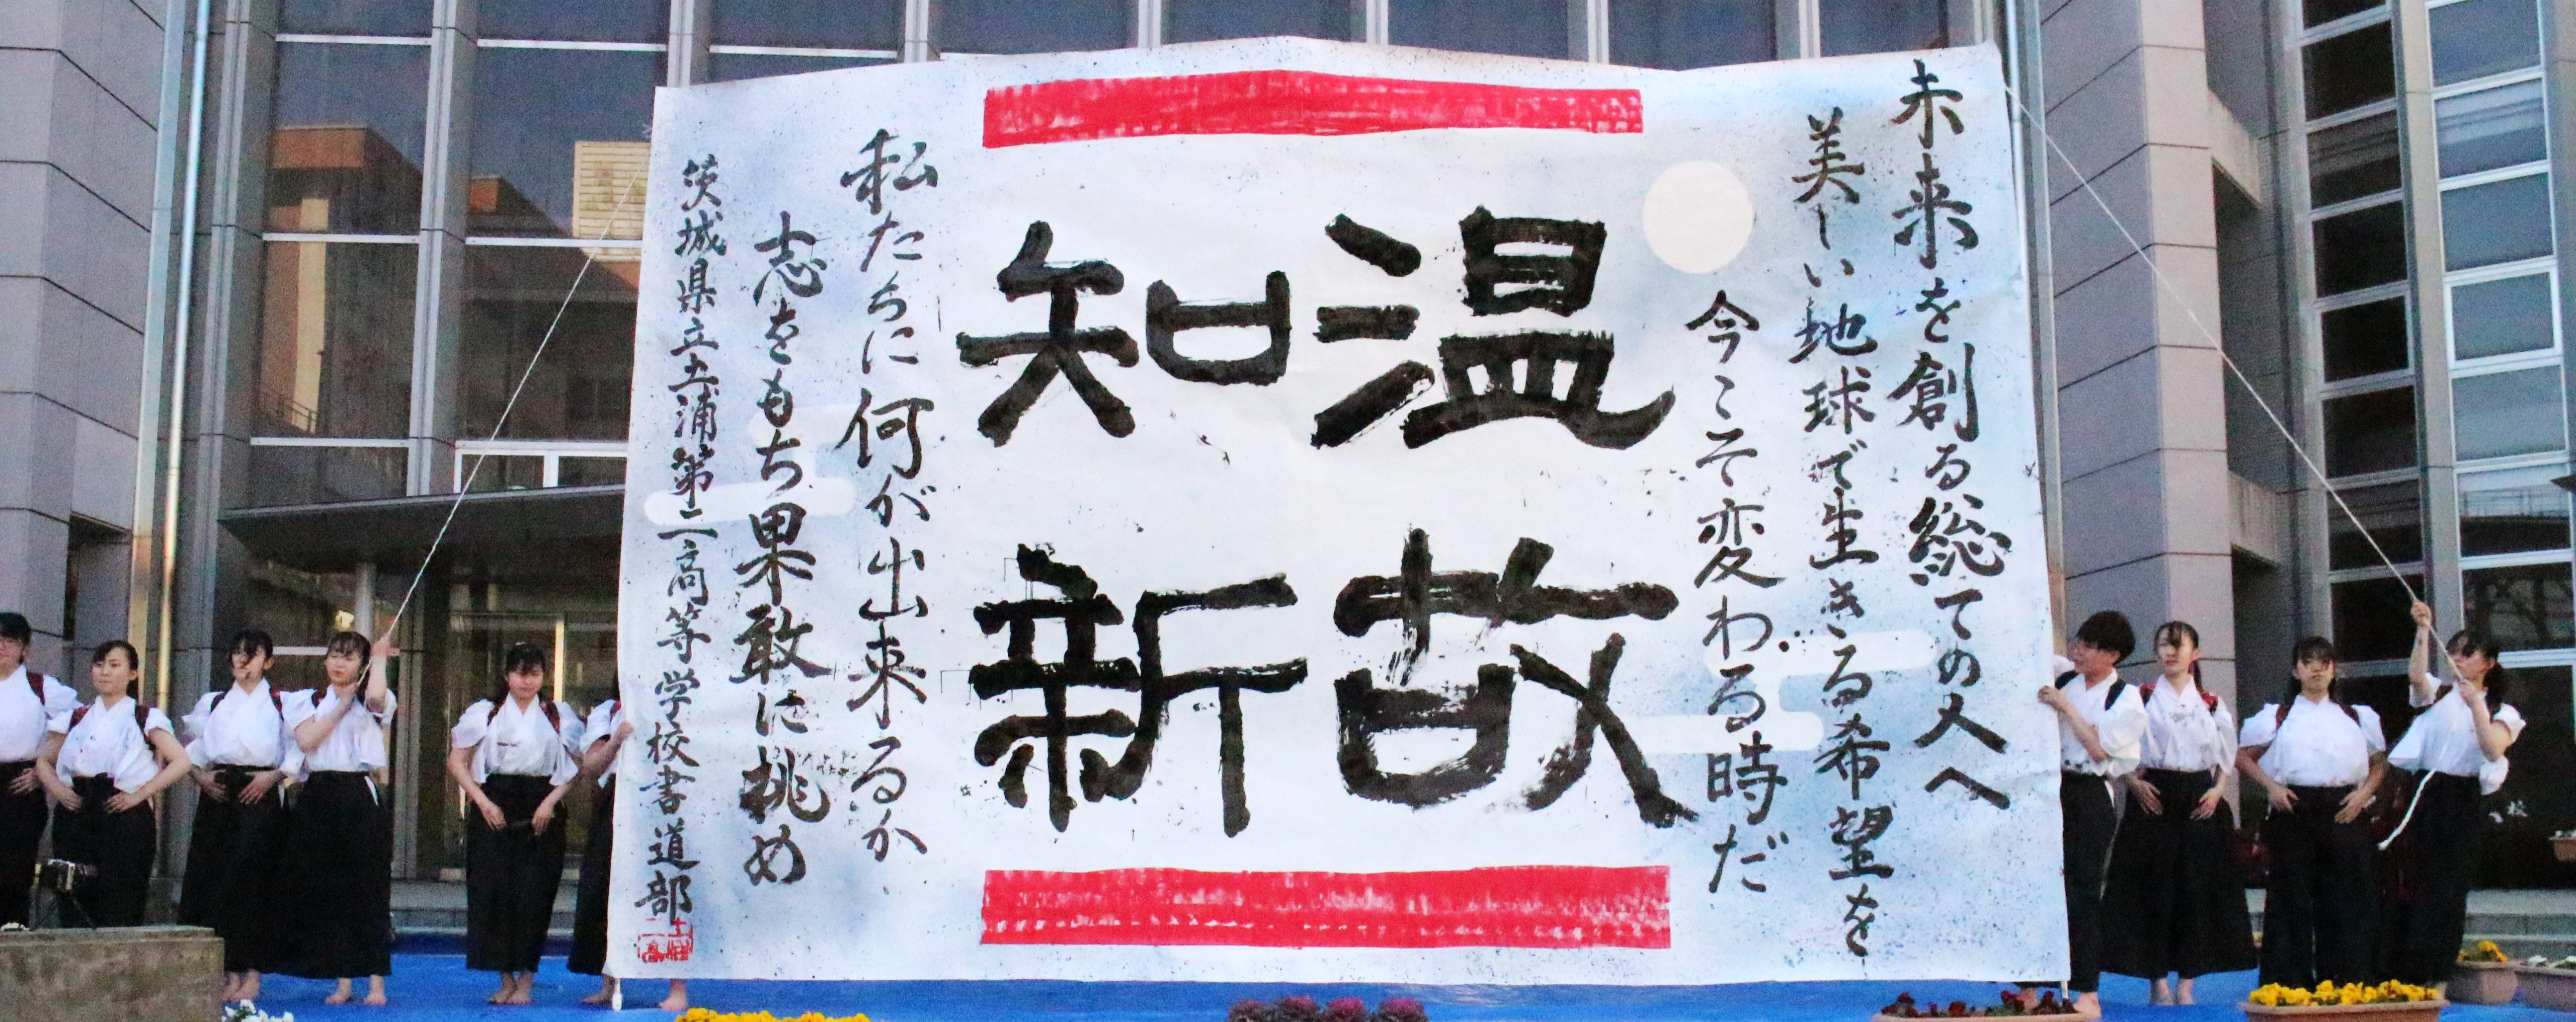 未来を創る総ての人へ
美しい地球で生きる希望を
今こそ変わる時だ
温故
知新
私たちに何が出来るか
志をもち果敢に挑め
茨城県立土浦第二高等学校書道部